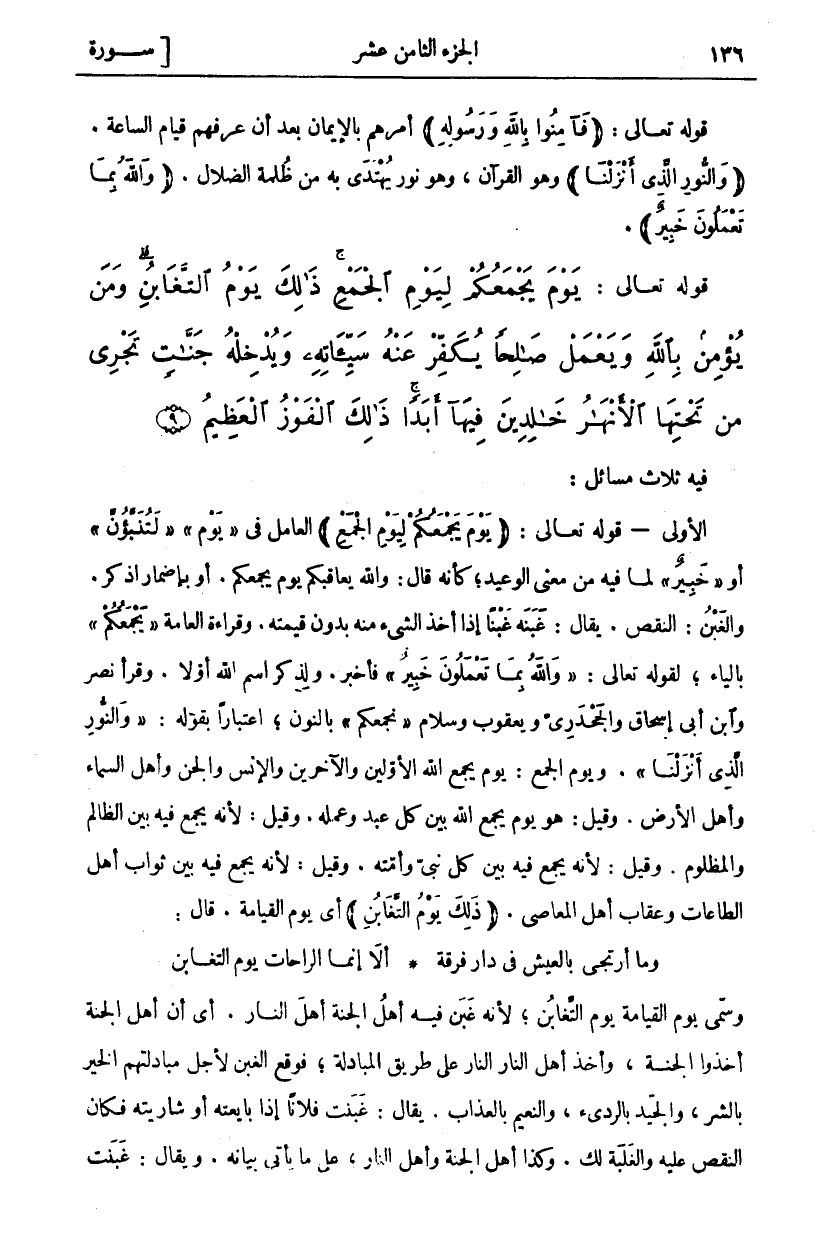 ١٣٦ الجزء الثامن عشر [ ســورة
قوله تعـالى : ﴿ فَآمِنُوا بِاللَّهِ وَرَسُولِهِ ﴾ أمرهم بالإيمان بعد أن عرفهم قيام الساعة .
﴿ وَالنُّورِ الَّذِى أَنْزَلْنَـا ﴾ وهو القرآن ، وهو نور يُهْتَدَى به من ظُلمة الضلال . ﴿ وَاللَّهُ بِمَـا
تَعْمَلُونَ خَبِيرٌ ﴾ .
قوله تعـالى : يَوْمَ يَجْمَعُكُمْ لِيَوْمِ ٱلْجَمْعِ ۖ ذَٰلِكَ يَوْمُ ٱلتَّغَابُنِ ۗ وَمَن
يُؤْمِنۢ بِٱللَّهِ وَيَعْمَلْ صَـٰلِحًا يُكَفِّرْ عَنْهُ سَيِّـَٔاتِهِۦ وَيُدْخِلْهُ جَنَّـٰتٍ تَجْرِى
مِن تَحْتِهَا ٱلْأَنْهَـٰرُ خَـٰلِدِينَ فِيهَآ أَبَدًا ۚ ذَٰلِكَ ٱلْفَوْزُ ٱلْعَظِيمُ ﴿٩﴾
فيه ثلاث مسائل :
الأولى – قوله تعـالى : ﴿ يَوْمَ يَجْمَعُكُمْ لِيَوْمِ الْجَمْعِ ﴾ العامل فى « يَوْم » « لَتُنَبَّؤُنَّ »
أو « خَبِيرٌ » لمـا فيه من معنى الوعيد؛ كأنه قال : والله يعاقبكم يوم يجمعكم . أو بإضمار اذكر .
والغَبْنُ : النقص . يقال : غَبَنَه غَبْنًا إذا أخذ الشىء منه بدون قيمته . وقراءة العامة « يَجْمَعُكُمْ »
بالياء ؛ لقوله تعالى : « وَاللَّهُ بِمَـا تَعْمَلُونَ خَبِيرٌ » فأخبر . ولذكر اسم الله أوّلا . وقرأ نصر
وٱبن أبى إسحاق والجَحْدَرِىّ ويعقوب وسلام « نجمعكم » بالنون ؛ اعتبارًا بقوله : « وَالنُّورِ
الَّذِى أَنْزَلْنَـا » . ويوم الجمع : يوم يجمع الله الأوّلين والآخرين والإنس والجن وأهل السماء
وأهل الأرض . وقيل : هو يوم يجمع الله بين كل عبد وعمله . وقيل : لأنه يجمع فيه بين الظالم
والمظلوم . وقيل : لأنه يجمع فيه بين كل نبىّ وأمّته . وقيل : لأنه يجمع فيه بين ثواب أهل
الطاعات وعقاب أهل المعاصى . ﴿ ذَلِكَ يَوْمُ التَّغَابُنِ ﴾ أى يوم القيامة . قال :
وما أرتجى بالعيش فى دار فرقة * ألَا إنمـا الراحات يوم التغـابن
وسمّى يوم القيامة يوم التَّغَابُن ؛ لأنه غَبَن فيــه أهلُ الجنة أهلَ النـار . أى أن أهل الجنة
أخذوا الجنــة ، وأخذ أهل النار النار على طريق المبادلة ؛ فوقع الغبن لأجل مبادلتهم الخير
بالشر ، والجيّد بالردىء ، والنعيم بالعذاب . يقال : غَبَنت فلانًا إذا بايعته أو شاريته فـكان
النقص عليه والغَلَبة لك . وكذا أهل الجنة وأهل النار ، على ما يأتى بيانه . ويقال : غَبَنت